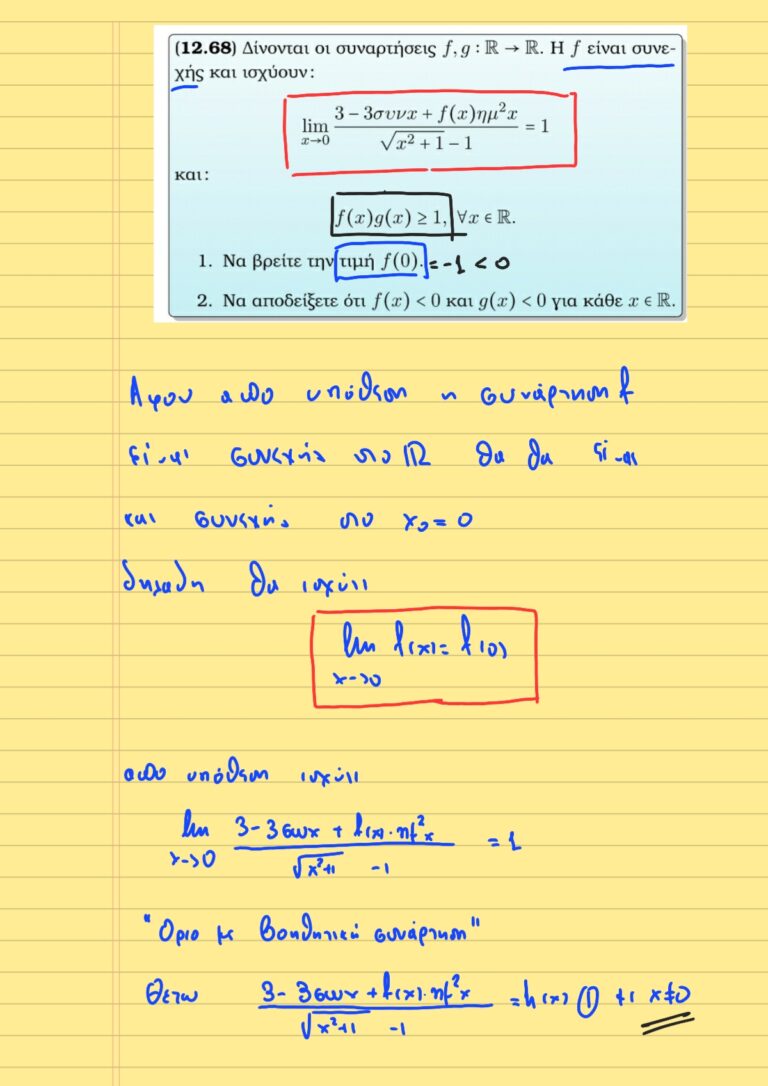 (12.68) Δίνονται οι συναρτήσεις f, g : ℝ → ℝ. Η f είναι συνε-
χής και ισχύουν:
lim x→0 (3 − 3συνx + f(x)ημ²x) / (√(x² + 1) − 1) = 1
και:
f(x)g(x) ≥ 1, ∀x ∈ ℝ.
1. Να βρείτε την τιμή f(0). = -1 < 0
2. Να αποδείξετε ότι f(x) < 0 και g(x) < 0 για κάθε x ∈ ℝ.
Αφου απο υπόθεση η συνάρτηση f
είναι συνεχής στο ℝ θα θα είναι
και συνεχής στο x₀ = 0
δηλαδη θα ισχύει
lim x→0 f(x) = f(0)
απο υπόθεση ισχύει
lim x→0 (3 - 3συνx + f(x)·ημ²x) / (√(x²+1) - 1) = 1
"Οριο με βοηθητική συνάρτηση"
Θετω (3 - 3συνx + f(x)·ημ²x) / (√(x²+1) - 1) = h(x) ① με x≠0